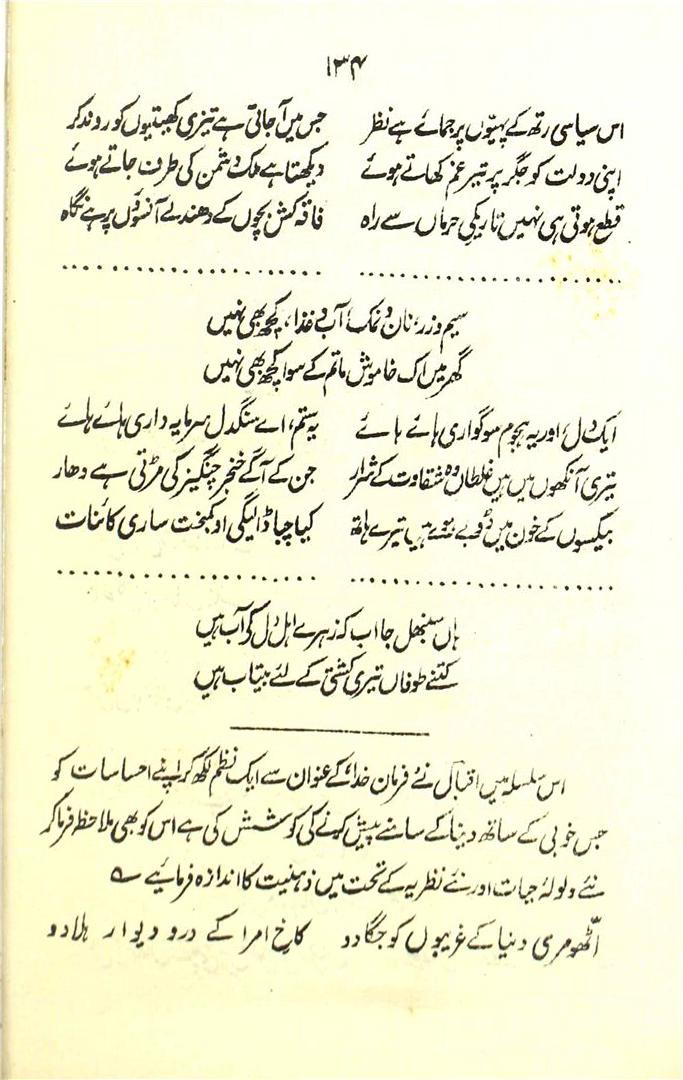 ۱۳۴
اس سیاسی رتھ کے پہیّوں پر جمائے ہے نظر جس میں آ جاتی ہے تیزی کھیتیوں کو روند کر
اپنی دولت کو جگر پر تیرِ غم کھاتے ہوئے دیکھتا ہے ملک دشمن کی طرف جاتے ہوئے
قطع ہوتی ہی نہیں تاریکیِ حرماں سے راہ فاقہ کش بچّوں کے دھندلے آنسوؤں پر ہے نگاہ
سیم و زر، نان و نمک، آب و غذا، کچھ بھی نہیں
گھر میں اک خاموش ماتم کے سوا کچھ بھی نہیں
ایک دل، اور یہ ہجومِ سوگواری ہائے ہائے یہ ستم، اے سنگدل سرمایہ داری ہائے ہائے
تیری آنکھوں میں ہیں غلطاں وہ شقاوت کے شرار جن کے آگے خنجرِ چنگیز کی مڑتی ہے دھار
بیکسوں کے خون میں ڈوبے ہوئے ہیں تیرے ہاتھ کیا چبا ڈالیگی او کمبخت ساری کائنات
ہاں سنبھل جا اب کہ زہرے اہلِ دل کے آب ہیں
کتنے طوفاں تیری کشتی کے لئے بیتاب ہیں
اس سلسلہ میں اقبال نے فرمان خدا، کے عنوان سے ایک نظم لکھ کر اپنے احساسات کو
جس خوبی کے ساتھ دنیا کے سامنے پیش کرنے کی کوشش کی ہے اس کو بھی ملاحظہ فرما کر
نئے ولولۂ حیات اور نئے نظریہ کے تحت میں ذہنیت کا اندازہ فرمائیے ؎
اٹّھو مری دنیا کے غریبوں کو جگا دو کاخِ امرا کے در و دیوار ہلا دو